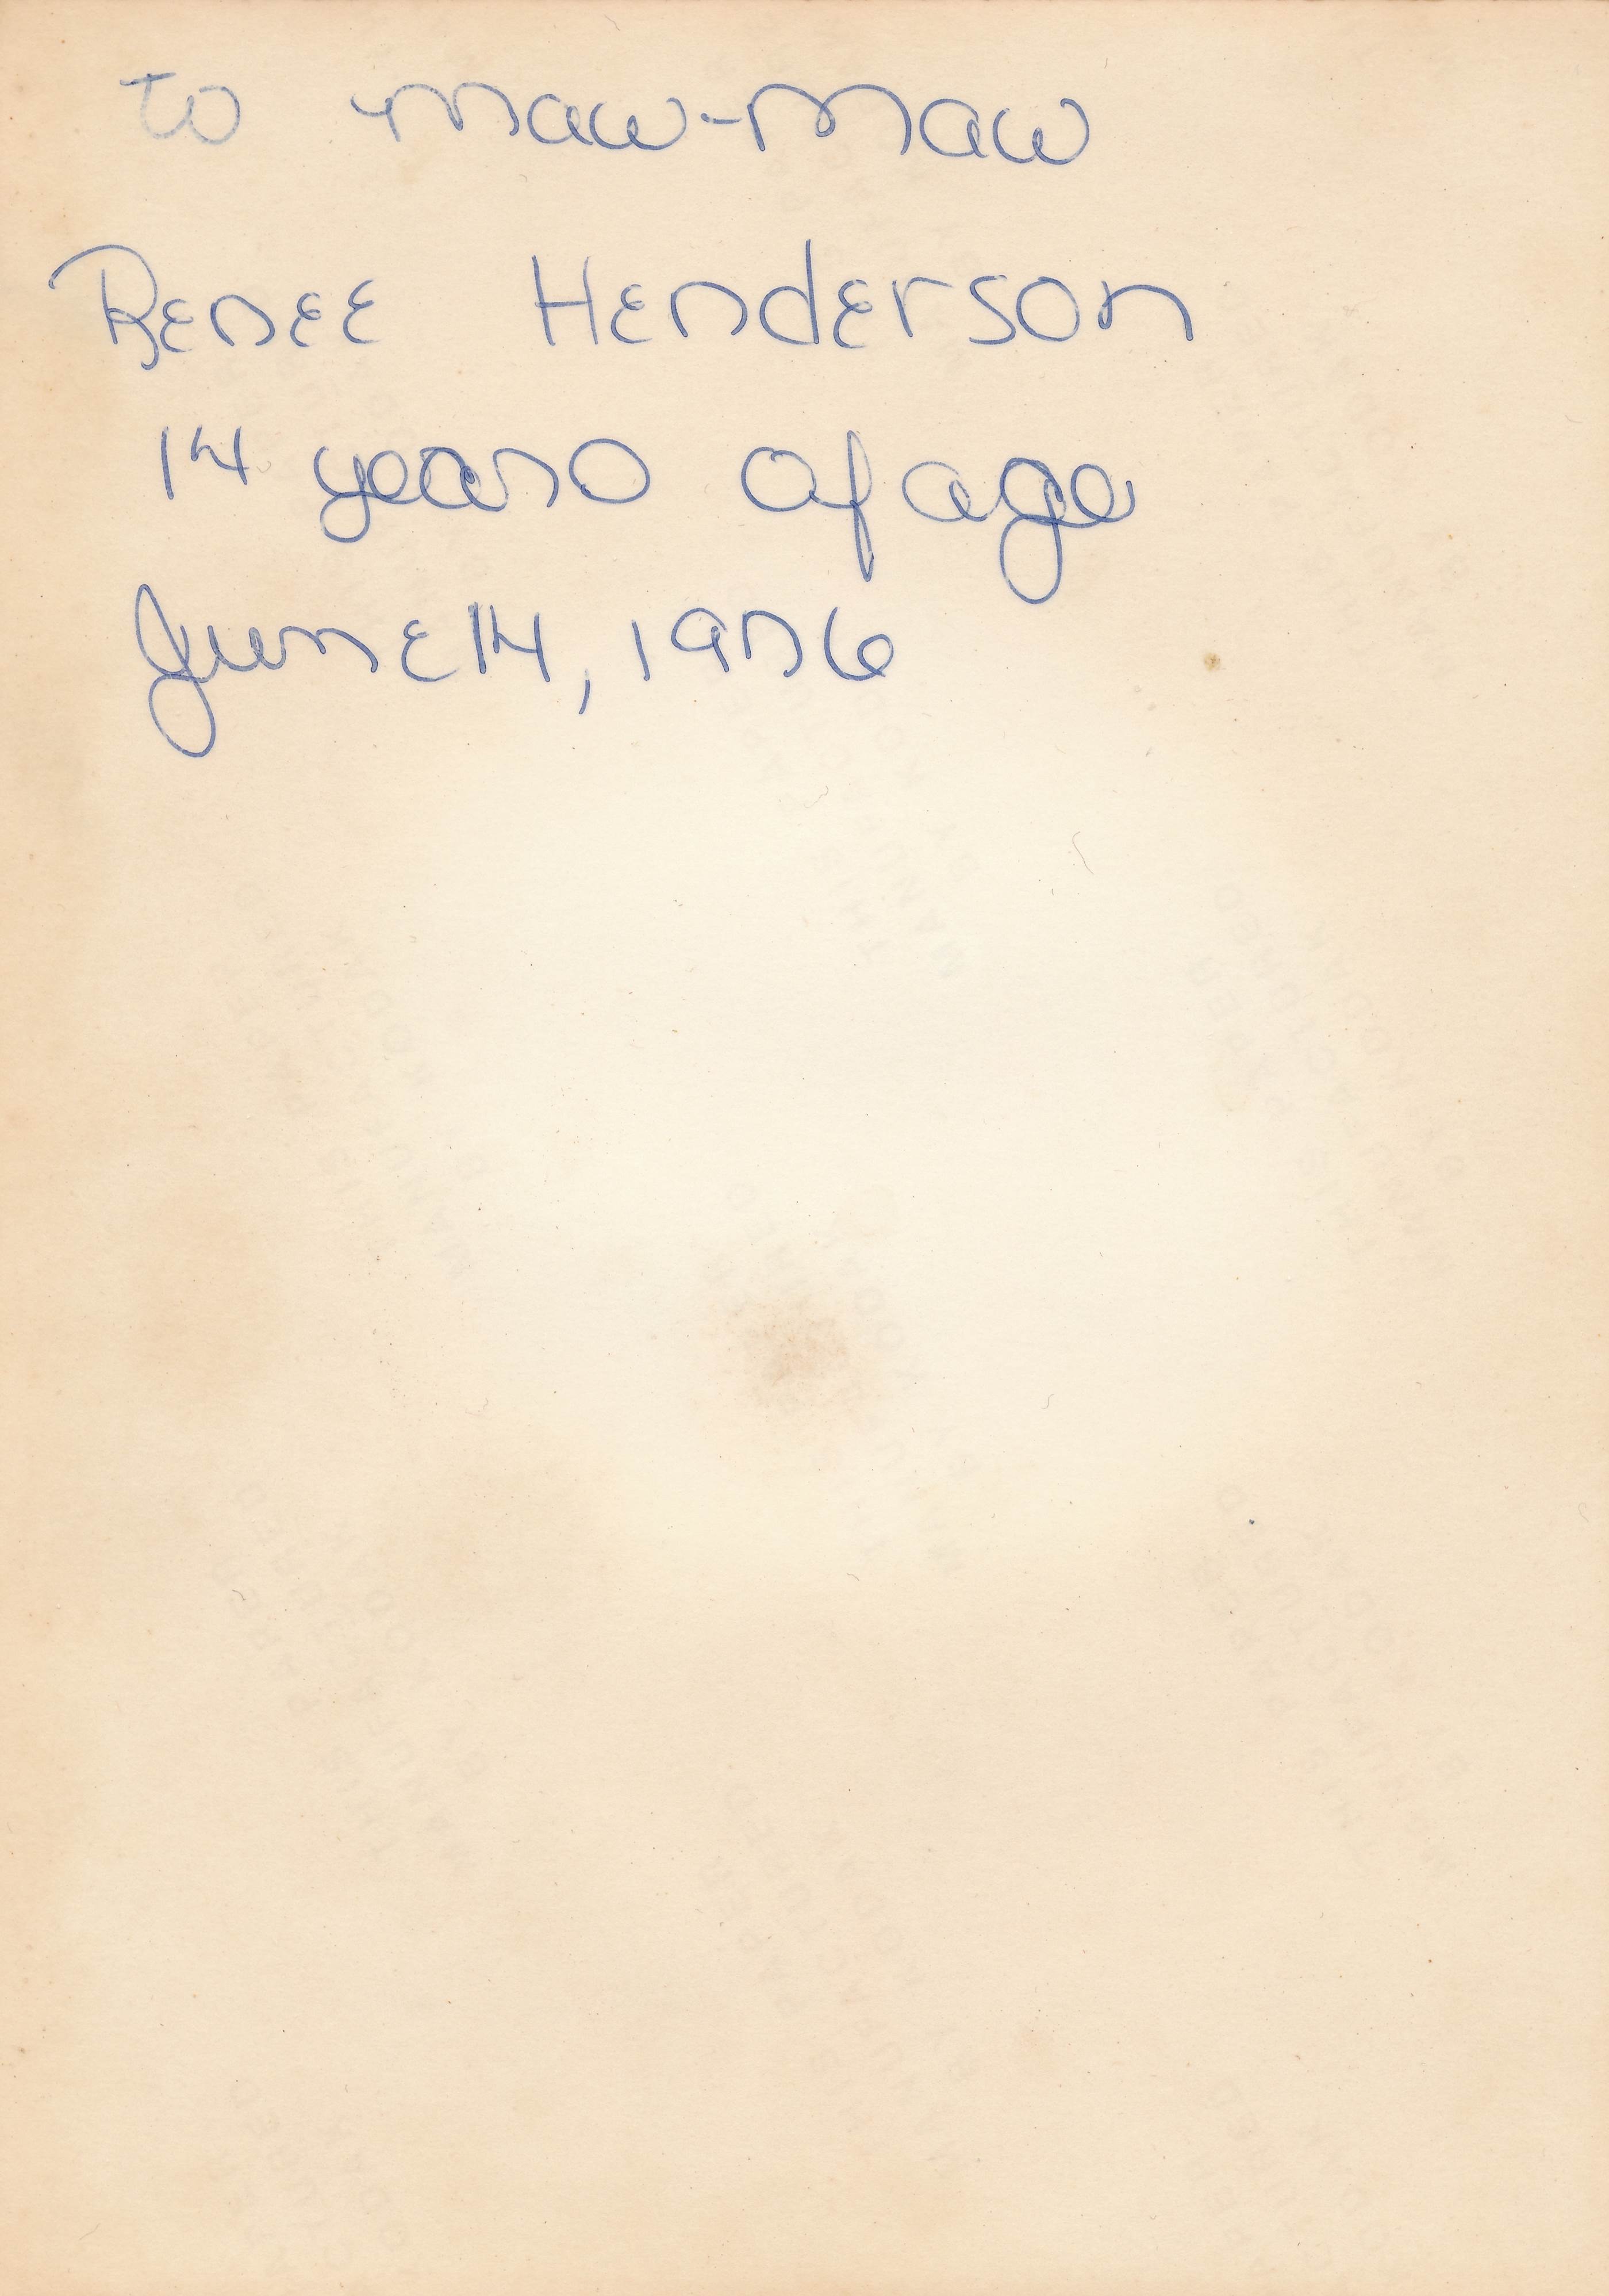 to Maw-Maw
Renee Henderson
14 years of age
June 14, 1976